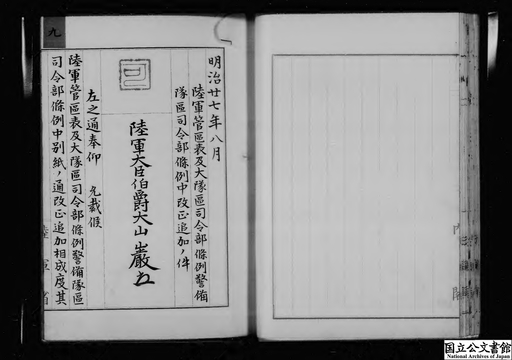 明治廿七年八月
陸軍管區表及大隊區司令部條例警備
隊區司令部條例中改正追加ノ件
陸軍大臣伯爵大山巖
左之通奉仰 允裁候
陸軍管區表及大隊區司令部條例警備隊區
司令部條例中別紙ノ通改正追加相成度其
陸軍省
九
国立公文書館
National Archives of Japan